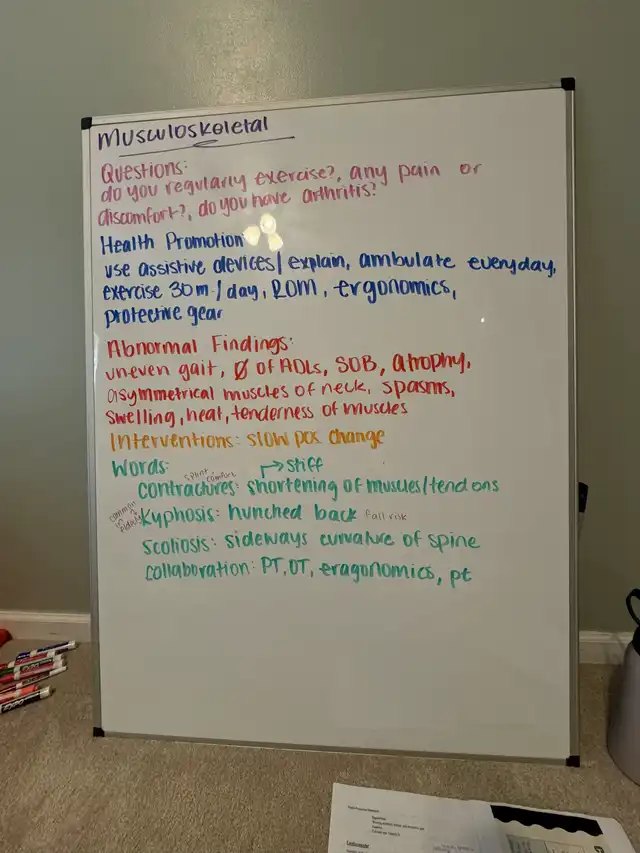 Musculoskeletal
Questions:
do you regularly exercise?, any pain or
discomfort?, do you have arthritis?
Health Promotion
use assistive devices/explain, ambulate everyday,
exercise 30m/day, ROM, ergonomics,
protective gear
Abnormal Findings:
uneven gait, Ø of ADLs, SOB, atrophy,
asymmetrical muscles of neck, spasms,
swelling, heat, tenderness of muscles
Interventions: slow pos change
Words:
→ stiff
splint comfort
contractures: shortening of muscles/tendons
common in
kyphosis: hunched back fall risk
scoliosis: sideways curvature of spine
collaboration: PT, OT, eragonomics, pt
EXPO